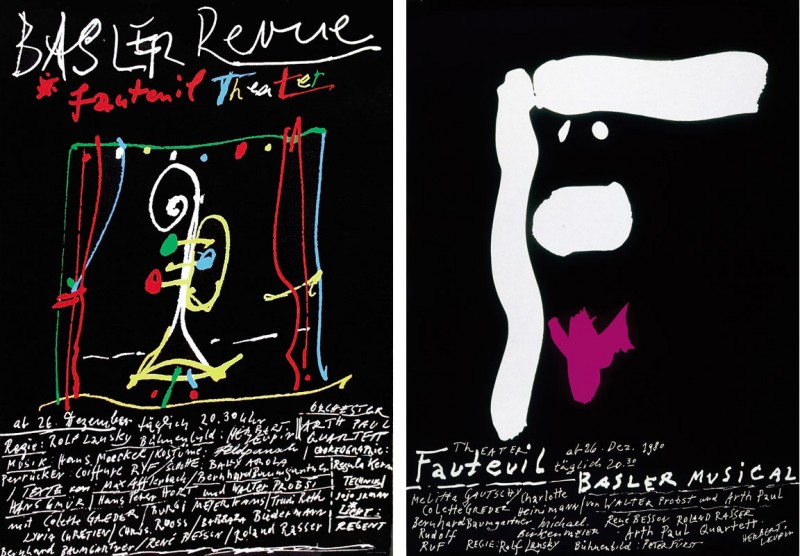 BASLER Revue
Fauteuil Theater
ab 26. Dezember täglich 20.30 Uhr
Regie: Rolf Lansky Bühnenbild: HERBERT LEUPIN
MUSIK: Hans Moeckel / KOSTÜME:
Perrücker: Coiffure RYF /
/ TEXTE von MAX Afflerbach / Bernhard Baumgartner
HANS GMUR / Hans Peter HORT und WALTER PROBST
mit Colette GREDER / BURGI MEIER HANS / Trudi Roth
LYRIA CHRETIEN / CHRIS. ROOSS / BARBARA Büdermann
Bernhard BAUMGARTNER / RENÉ BESSON / Roland Rasser
ORCHESTER
ARTH PAUL
QUARTETT
CHOREOGRAPHIE:
Regula Kern
TECHNIK:
LICHT:
REGENT
THEATER ab 26. Dez. 1980
Fauteuil täglich 20.30
BASLER MUSICAL
Melitta GAUTSCHY Charlotte
Colette GREDER Heinimann / von WALTER Probst und Arth Paul
Bernhard Baumgartner Michael RENÉ BESSON ROLAND RASSER
Rudolf Birkenmeier Arth Paul Quartett
RYF / REGIE: Rolf Lansky Bühnenbild: HERBERT LEUPIN
PETER FÜRST